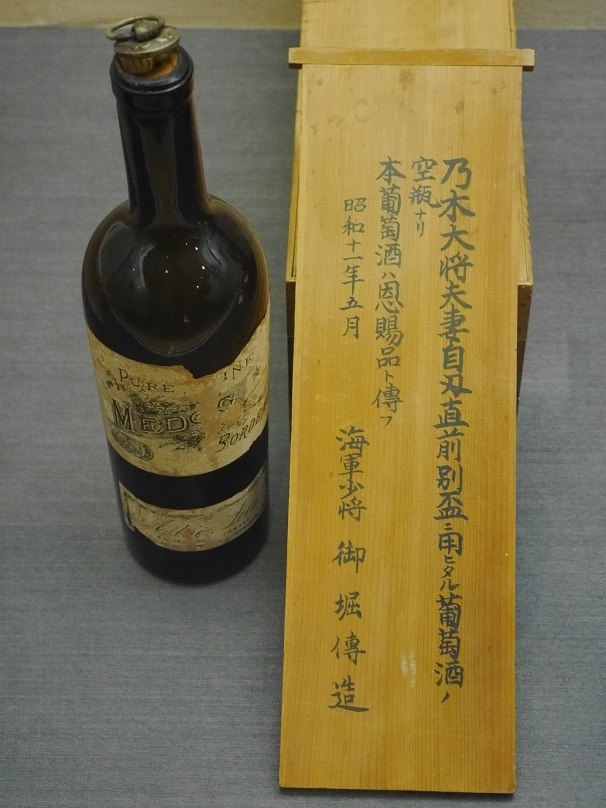 乃木大将夫妻自刃直前別盃ニ用ヒタル葡萄酒ノ
空瓶ナリ
本葡萄酒ハ恩賜品ト傳フ
昭和十一年五月
海軍少将 御堀傳造
PURE
INE
MEDOC
BORDE